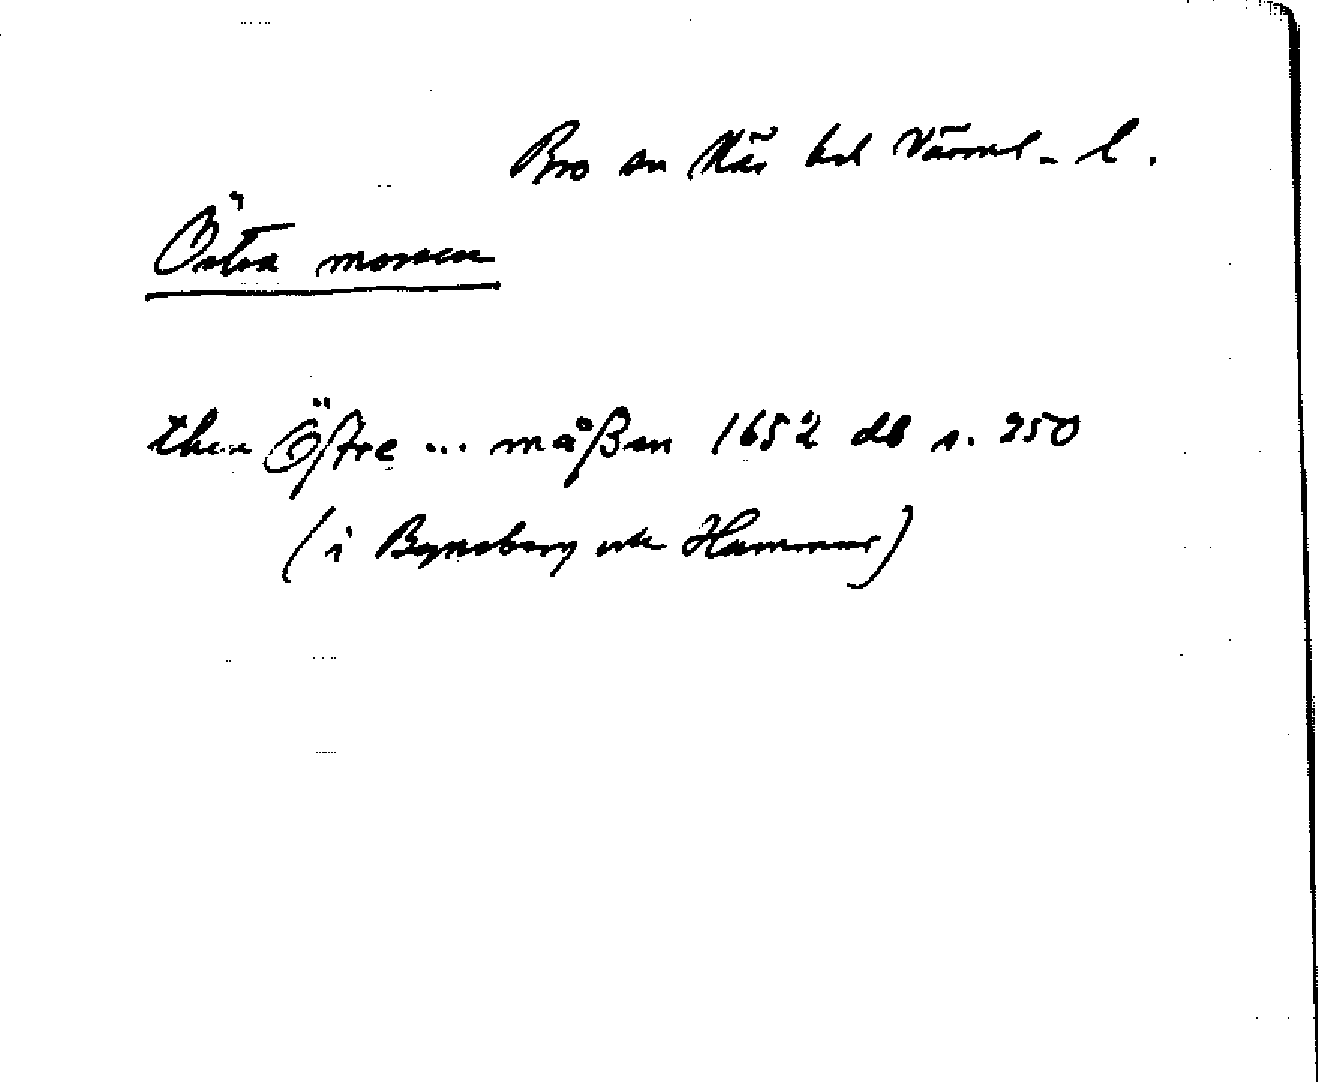 Bro sn Näs hd Värml. l.
Östra mossen
then Östre ... måßen 1652 db s. 250
(i Bynsberg utm Hammar)